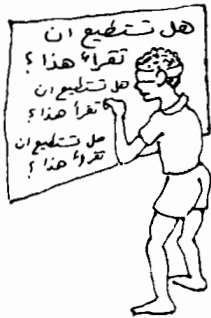 هل تستطيع ان
تقرأ هذا ؟
هل تستطيع ان
تقرأ هذا ؟
هل تستطيع ان
تقرأ هذا ؟